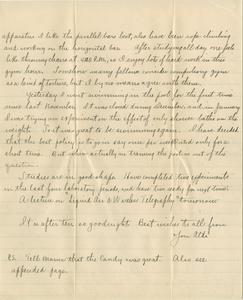 apparatus I like the parallel bars best, also have been rope climbing
and working on the horizontal bar. After studying all day one feels
like throwing chairs at 4:00 P.M., so I enjoy lots of hard work in this
gym hour. Somehow many fellows consider compulsory gym
as a kind of torture, but I by no means agree with them.
Yesterday I went swimming in the pool for the first time
since last November. It was closed during December, and in January
I was trying an experiment on the effect of only shower baths on my
weight. So it was great to be swimming again. I have decided
that the best policy is to gym say once per week and only for a
short time. But when actually in training the pool is out of the
question.
Studies are in good shape. Have completed two experiments
in the last four laboratory periods, and have two ready for next time.
A lecture on Liquid Air & Wireless Telegraphy tomorrow.
It is after ten so goodnight. Best wishes to all from
Your Aldo
P.S. Tell Mamie that the candy was great. Also see
appended page.